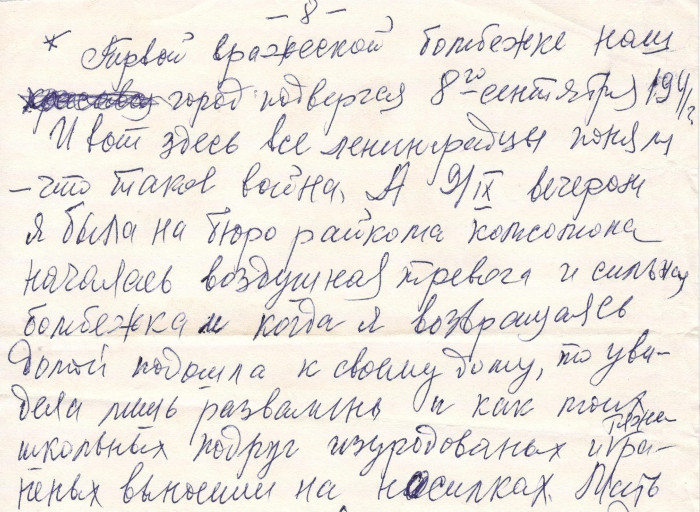 - 8 -
* Первой вражеской бомбежке наш
город подвергся 8го сентября 1941г.
И вот здесь все ленинградцы поняли
- что такое война. А 9/IX вечером
я была на бюро райкома комсомола
началась воздушная тревога и сильная
бомбежка и когда я возвращаясь
домой подошла к своему дому, то уви-
дела лишь развалины и как моих
школьных подруг изуродованых и тяжело ра-
неных выносили на носилках. Мать